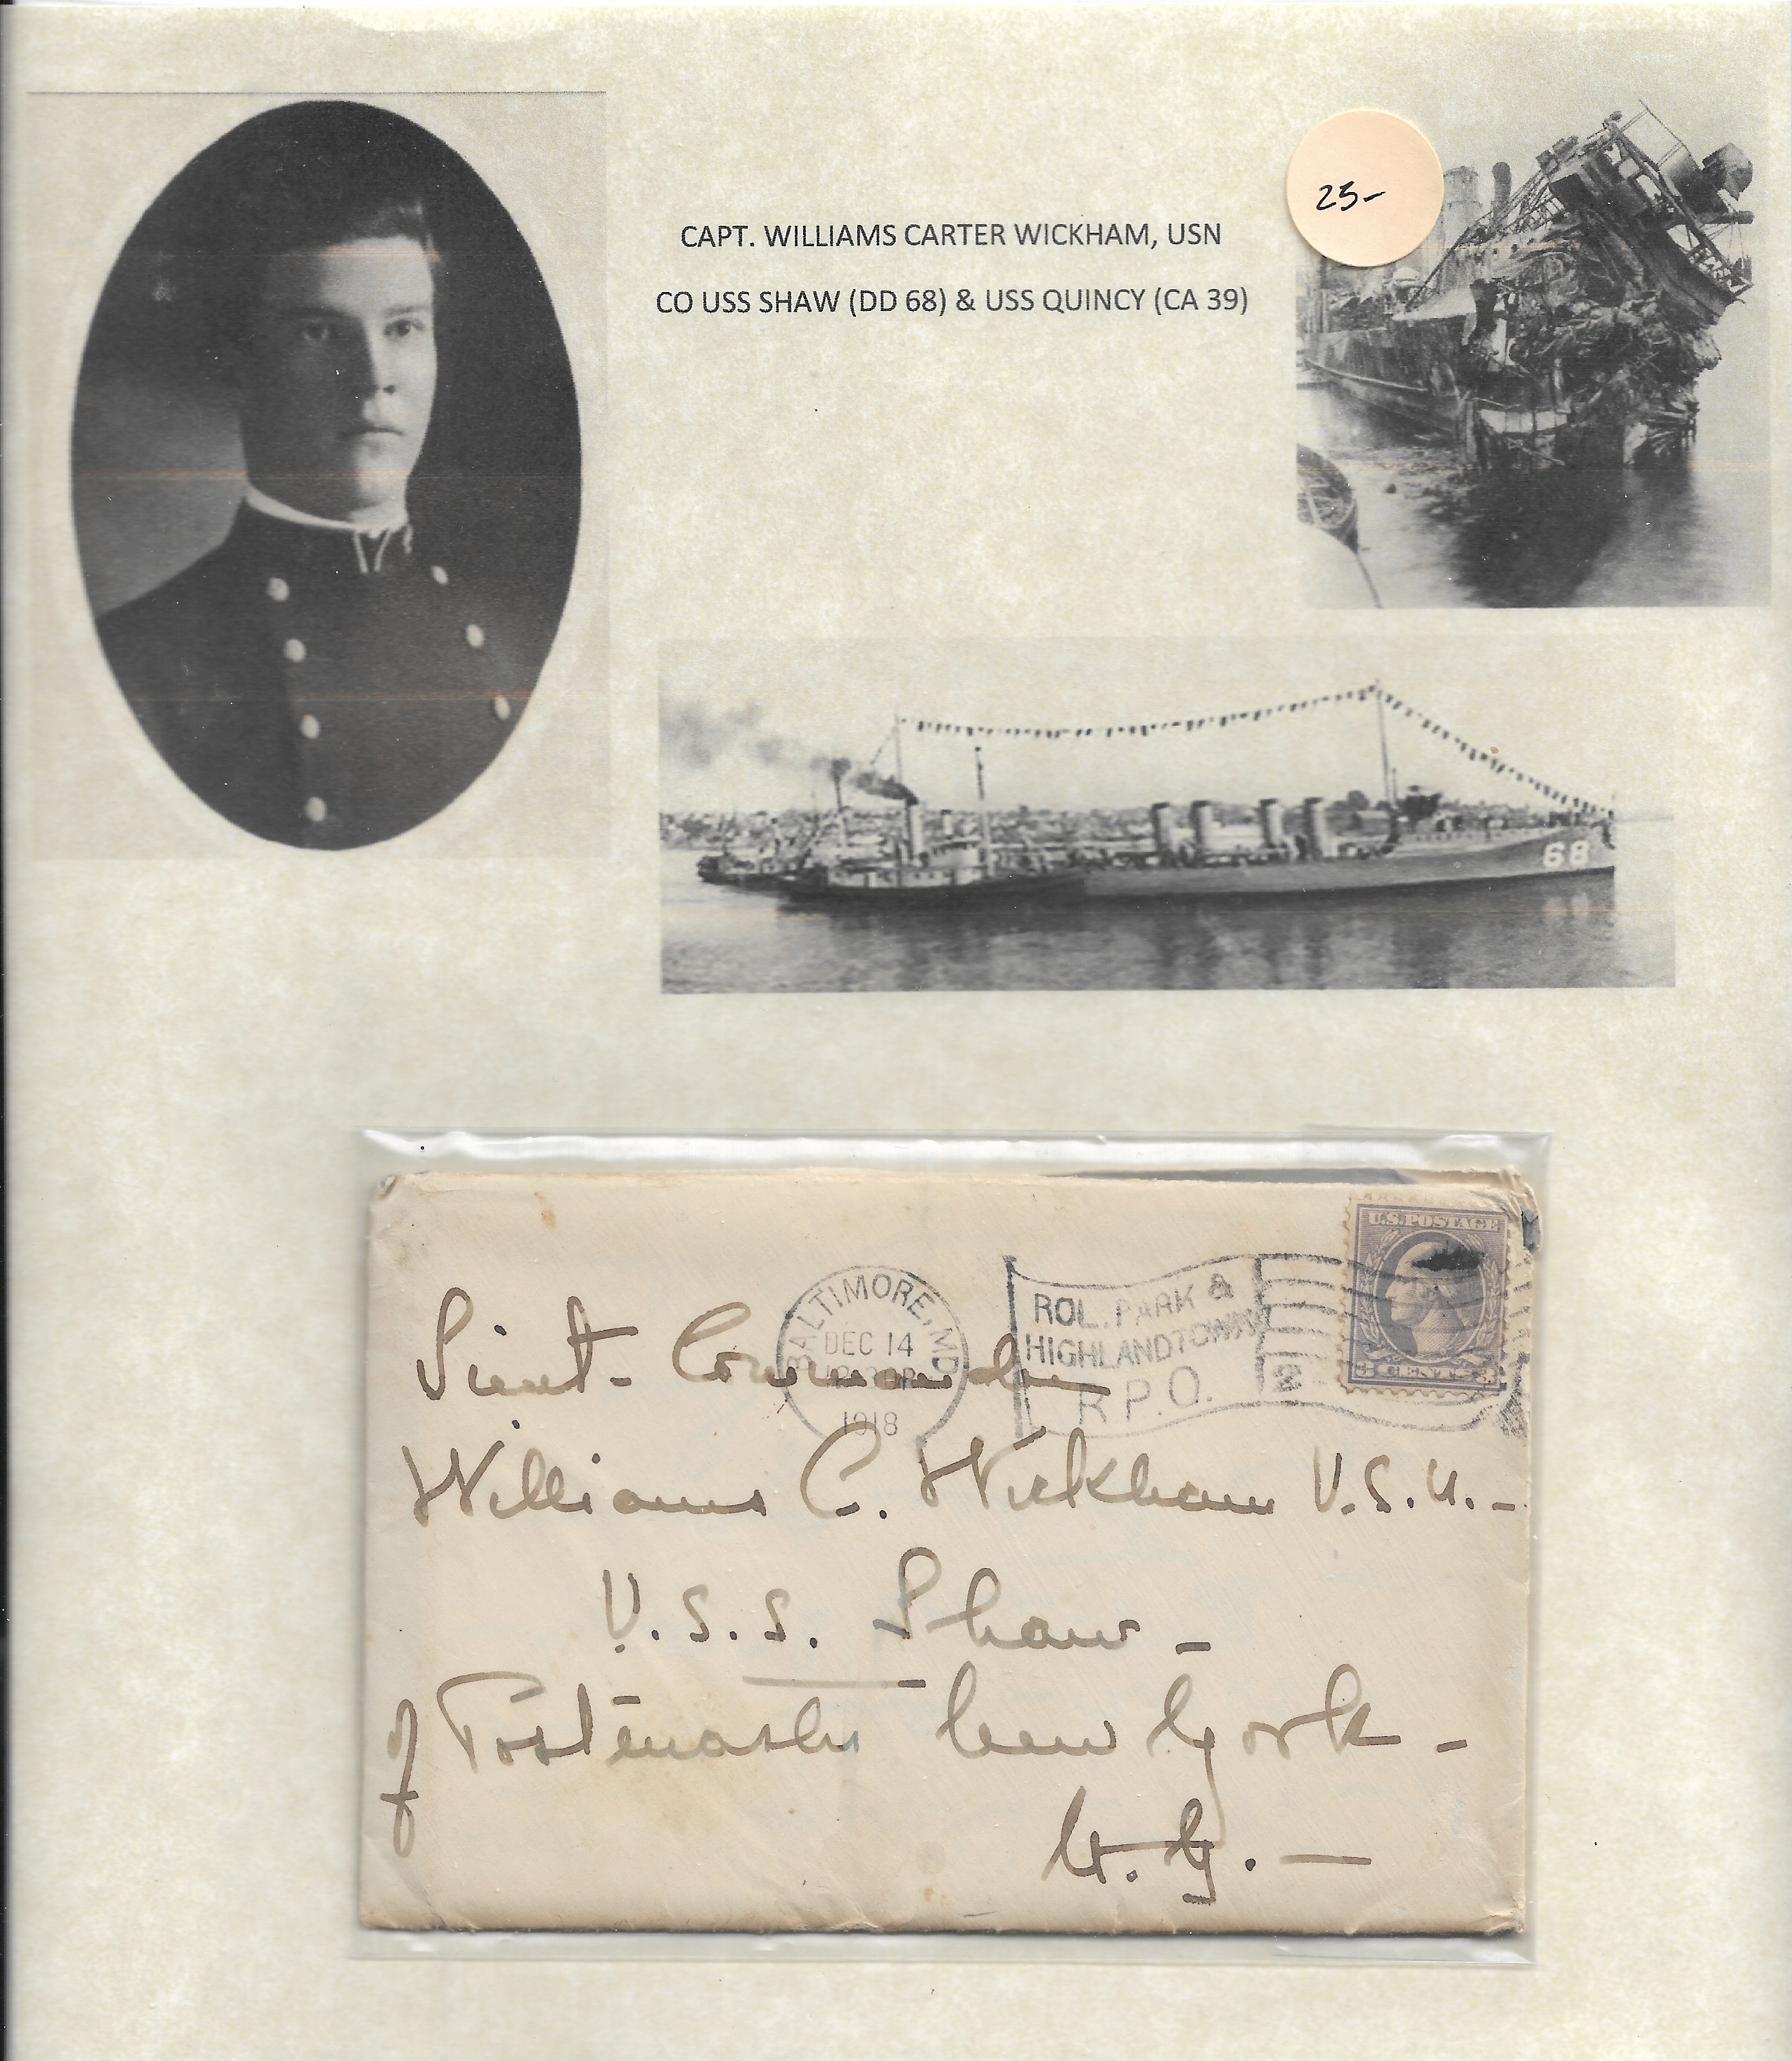 CAPT. WILLIAMS CARTER WICKHAM, USN
CO USS SHAW (DD 68) & USS QUINCY (CA 39)
25-
68
U.S. POSTAGE
3 CENTS 3
BALTIMORE, MD
DEC 14
1918
ROL. PARK &
HIGHLANDTOWN
R.P.O.
2
Lieut- Commander
Williams C. Wickham U.S.N.-
U.S.S. Shaw-
c/o Postmaster New York-
N.Y.-